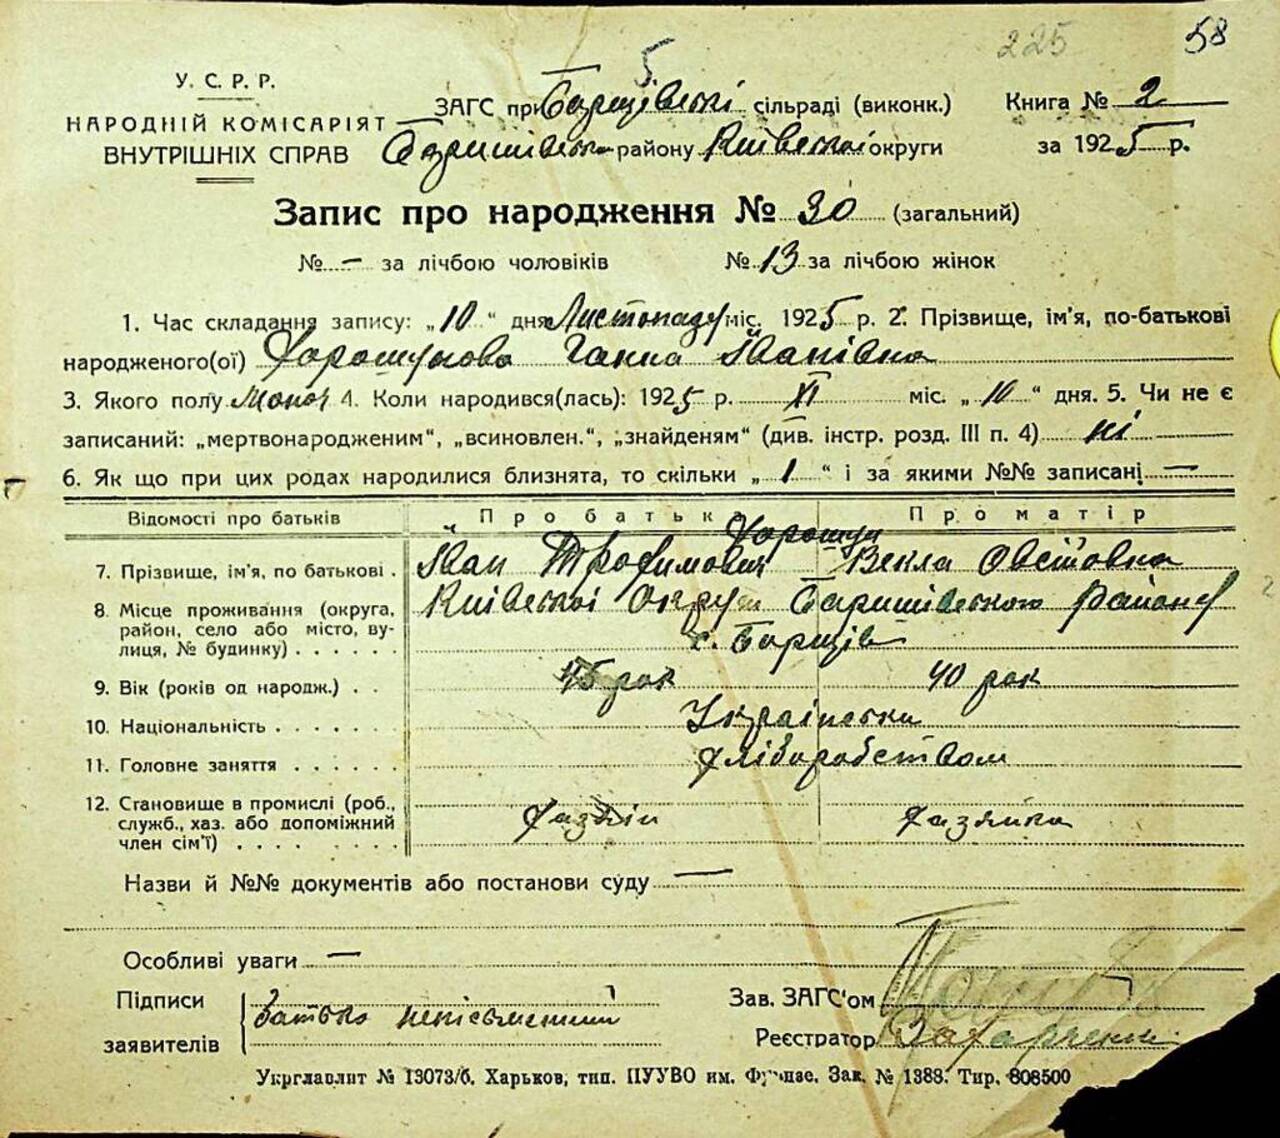 225 58
5
У. С. Р. Р.
НАРОДНІЙ КОМІСАРІЯТ
ВНУТРІШНІХ СПРАВ
ЗАГС при Борщівські сільраді (виконк.)
Баришівськ району Київської округи
Книга № 2
за 1925 р.
Запис про народження № 30 (загальний)
№ — за лічбою чоловіків № 13 за лічбою жінок
1. Час складання запису: „10“ дня Листопаду міс. 1925 р. 2. Прізвище, ім'я, по-батькові
народженого(ої) Ганна Іванівна
3. Якого полу 4. Коли народився(лась): 1925 р. XI міс. „10“ дня. 5. Чи не є
записаний: „мертвонародженим“, „всиновлен.“, „знайденям“ (див. інстр. розд. III п. 4) ні
6. Як що при цих родах народилися близнята, то скільки „1“ і за якими №№ записані —
Відомості про батьків Про батька Про матір
7. Прізвище, ім'я, по батькові . Іван Трофимович Векла Овстовна
8. Місце проживання (округа, район, село або місто, вулиця, № будинку) . . . . . . Київської Округ Баришівського Району
с. Борщів
9. Вік (років од народж.) . . 45 рок 40 рок
10. Національність . . . . . . . Українська
11. Головне заняття . . . . . . хліборобством
12. Становище в промислі (роб., служб., хаз. або допоміжний член сім'ї) . . . . . . . . Хазяін Хазяйка
Назви й №№ документів або постанови суду —
Особливі уваги —
Підписи
заявителів
батько неписьменний
Зав. ЗАГС'ом
Реєстратор Захарченко
Укрглавлит № 13073/б. Харьков, тип. ПУУВО им. Фрунзе. Зак. № 1388. Тир. 808500